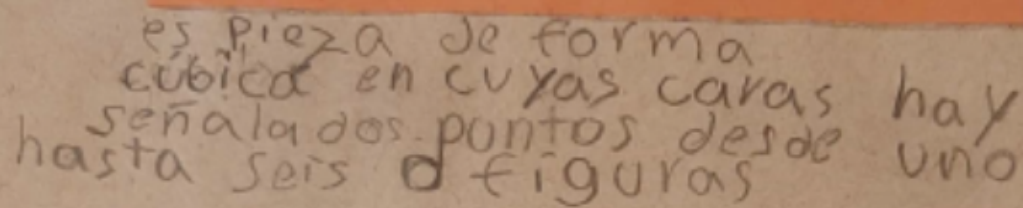 es pieza de forma
cúbica en cuyas caras hay
señalados puntos desde uno
hasta seis o figuras